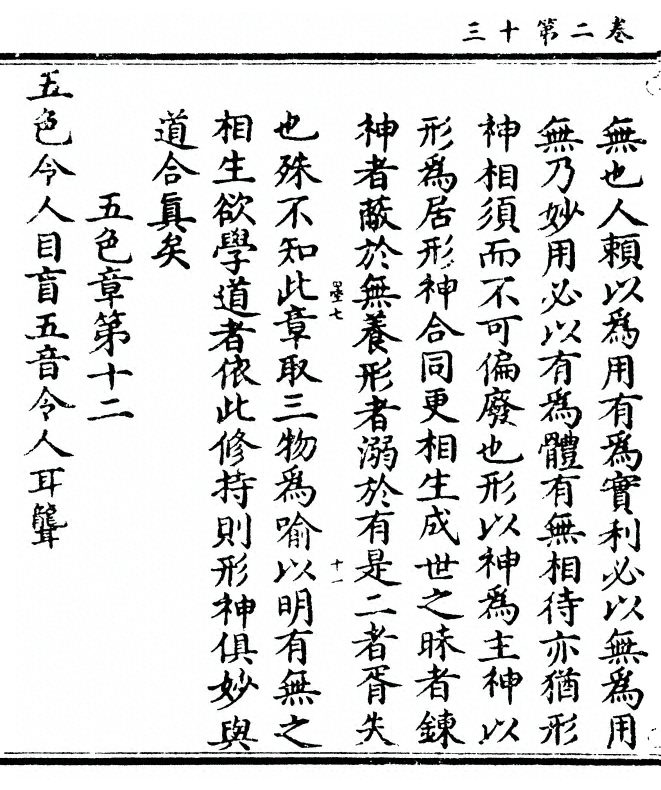 卷二第十三
無也人賴以爲用有爲實利必以無爲用
無乃妙用必以有爲體有無相待亦猶形
神相須而不可偏廢也形以神爲主神以
形爲居形神合同更相生成世之昧者鍊
神者蔽於無養形者溺於有是二者胥失
墨七
十一
也殊不知此章取三物爲喻以明有無之
相生欲學道者依此修持則形神俱妙與
道合眞矣
五色章第十二
五色令人目盲五音令人耳聾